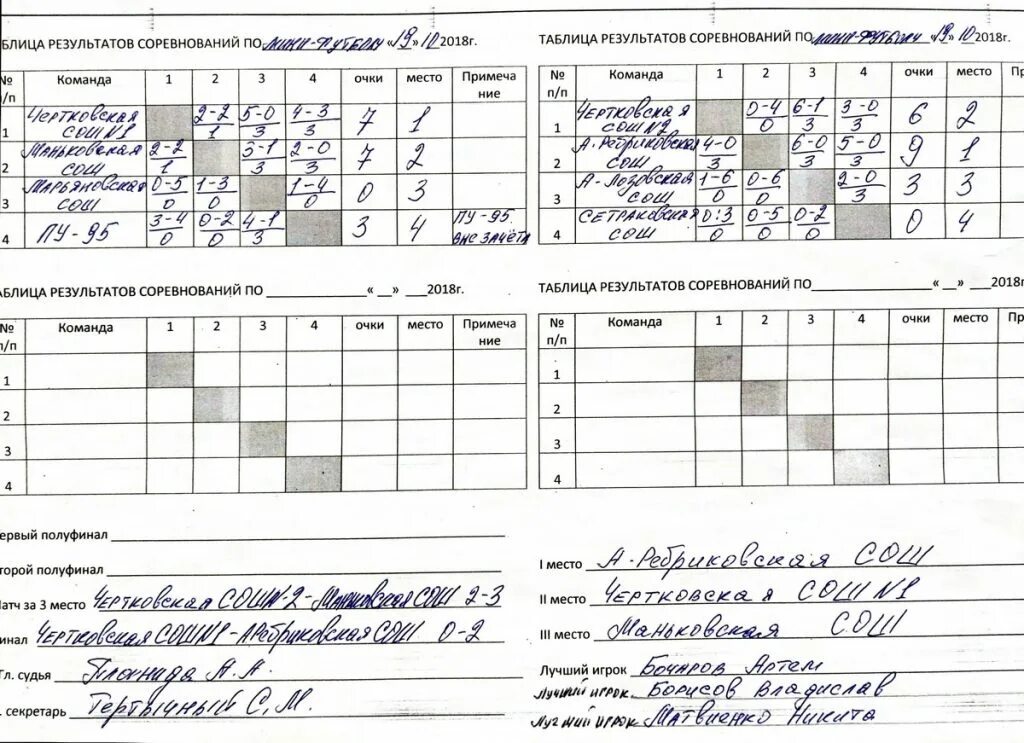 АБЛИЦА РЕЗУЛЬТАТОВ СОРЕВНОВАНИЙ ПО МИНИ-ФУТБОЛУ «19» 10 2018г.
№ п/п Команда 1 2 3 4 очки место Примеча ние
1 Чертковская СОШ №1 2-2 1 5-0 3 4-3 3 7 1
2 Маньковская СОШ 2-2 1 3-1 3 2-0 3 7 2
3 Марьяновская СОШ 0-5 0 1-3 0 1-4 0 0 3
4 ПУ-95 3-4 0 0-2 0 4-1 3 3 4 ПУ-95 вне зачёта
ТАБЛИЦА РЕЗУЛЬТАТОВ СОРЕВНОВАНИЙ ПО МИНИ-ФУТБОЛУ «19» 10 2018г.
№ п/п Команда 1 2 3 4 очки место Пр
1 Чертковская СОШ №2 0-4 0 6-1 3 3-0 3 6 2
2 А-Ребриковская СОШ 4-0 3 6-0 3 5-0 3 9 1
3 А-Лозовская СОШ 1-6 0 0-6 0 2-0 3 3 3
4 Сетраковская СОШ 0:3 0 0-5 0 0-2 0 0 4
АБЛИЦА РЕЗУЛЬТАТОВ СОРЕВНОВАНИЙ ПО ____ «__» ___2018г.
№ п/п Команда 1 2 3 4 очки место Примеча ние
1
2
3
4
ТАБЛИЦА РЕЗУЛЬТАТОВ СОРЕВНОВАНИЙ ПО ____ «__» ___2018г
№ п/п Команда 1 2 3 4 очки место Пр
1
2
3
4
ервый полуфинал
торой полуфинал
Матч за 3 место Чертковская СОШ №2 - Маньковская СОШ 2-3
инал Чертковская СОШ №1 - А Ребриковская СОШ 0-2
Гл. судья Планида А.А.
. секретарь Тертычный С.М.
I место А-Ребриковская СОШ
II место Чертковская СОШ №1
III место Маньковская СОШ
Лучший игрок Бочаров Артем
Лучший игрок Борисов Владислав
Лучший игрок Матвиенко Никита